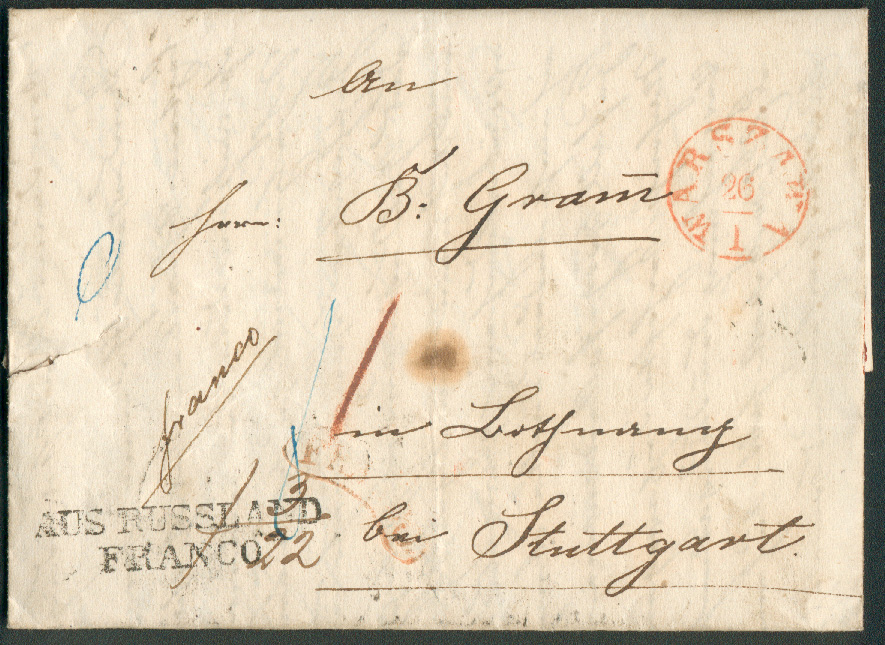 An
WARSZAWA
26
1
Herrn: B: Gram̅
franco
in Bothnang
AUS RUSSLAND
FRANCO
3
22
bei Stuttgart.